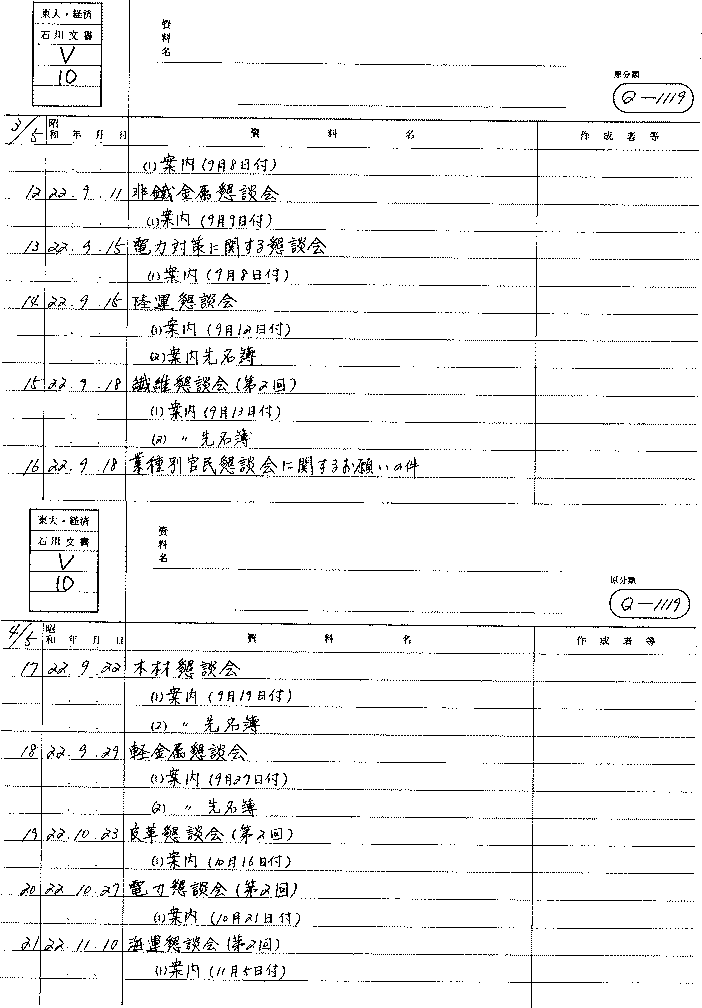 東大・経済
石川文書
V
10
資料名
原分類
Q-1119
3/5 昭和 年 月 日 資料名 作成者等
(1)案内(9月8日付)
12 22.9.11 非鐵金属懇談会
(1)案内(9月9日付)
13 22.9.15 電力対策に関する懇談会
(1)案内(9月8日付)
14 22.9.15 陸運懇談会
(1)案内(9月12日付)
(2)案内先名簿
15 22.9.18 繊維懇談会(第2回)
(1)案内(9月13日付)
(2) 〃 先名簿
16 22.9.18 業種別官民懇談会に関するお願いの件
東大・経済
石川文書
V
10
資料名
原分類
Q-1119
4/5 昭和 年 月 日 資料名 作成者等
17 22.9.22 木材懇談会
(1)案内(9月19日付)
(2) 〃 先名簿
18 22.9.29 軽金属懇談会
(1)案内(9月27日付)
(2) 〃 先名簿
19 22.10.23 皮革懇談会(第2回)
(1)案内(10月16日付)
20 22.10.27 電力懇談会(第2回)
(1)案内(10月21日付)
21 22.11.10 海運懇談会(第2回)
(1)案内(11月5日付)